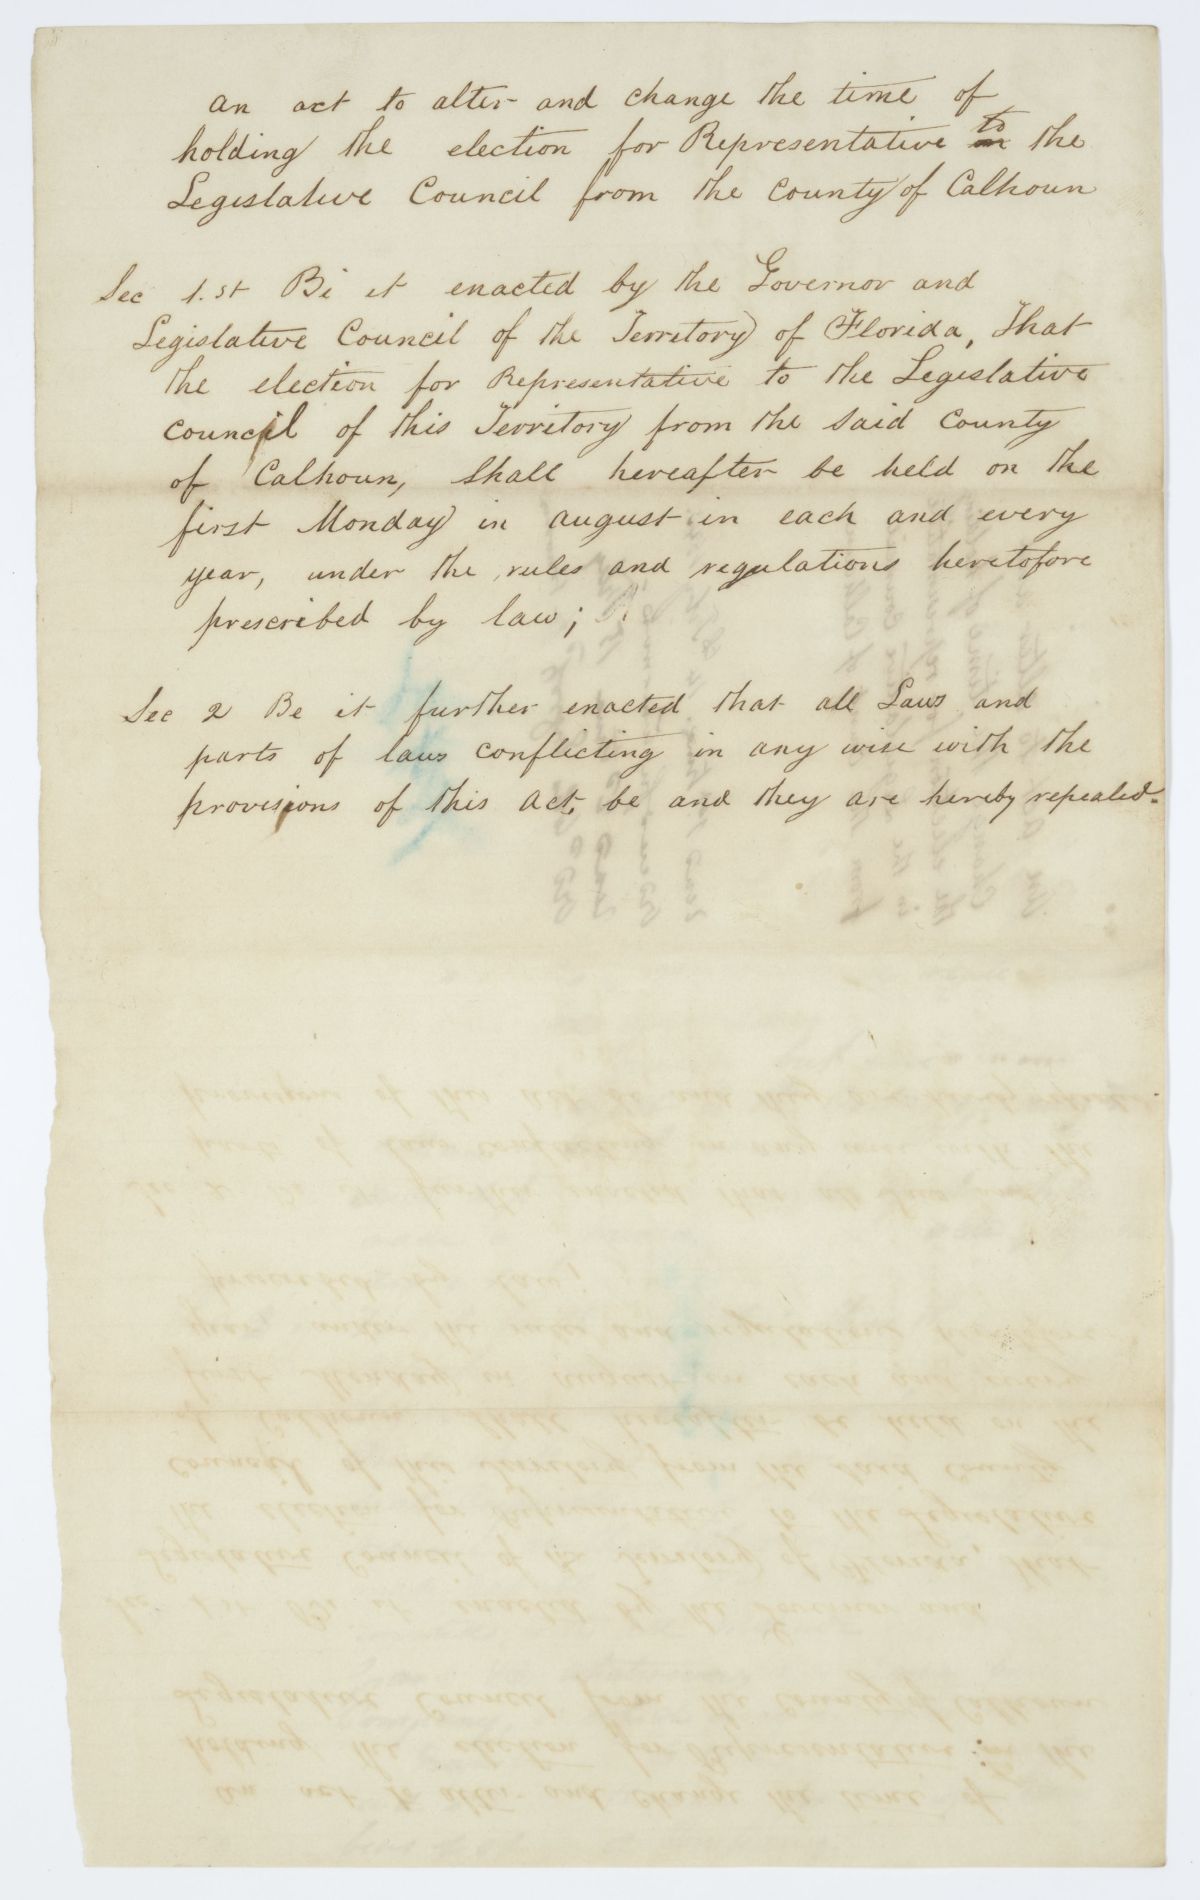 an act to alter and change the time of
holding the election for Representative to the
Legislative Council from the County of Calhoun
Sec 1.st Bi it enacted by the Governor and
Legislative Council of the Territory of Florida, That
the election for Representative to the Legislative
Council of this Territory from the said County
of Calhoun, Shall hereafter be held on the
first Monday in august in each and every
year, under the rules and regulations heretofore
prescribed by law;
Sec 2 Be it further enacted that all Laws and
parts of laws conflicting in any wise with the
provisions of this act, be and they are hereby repealed.